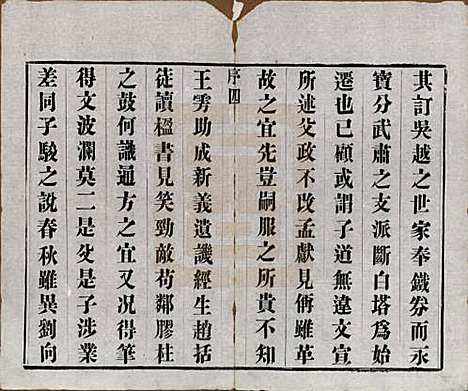 其訂吳越之世家奉鐵券而永
寶分武肅之支派斷白塔為始
遷也已顧或謂子道無違文宣
所述父政不改孟獻見傳雖革
故之宜先豈嗣服之所貴不知
序 四
王雱助成新義遺譏經生趙括
徒讀楹書見笑勁敵苟鄰膠柱
之鼓何議通方之宜又況得筆
得文波瀾莫二是父是子涉業
差同子駿之說春秋雖異劉向